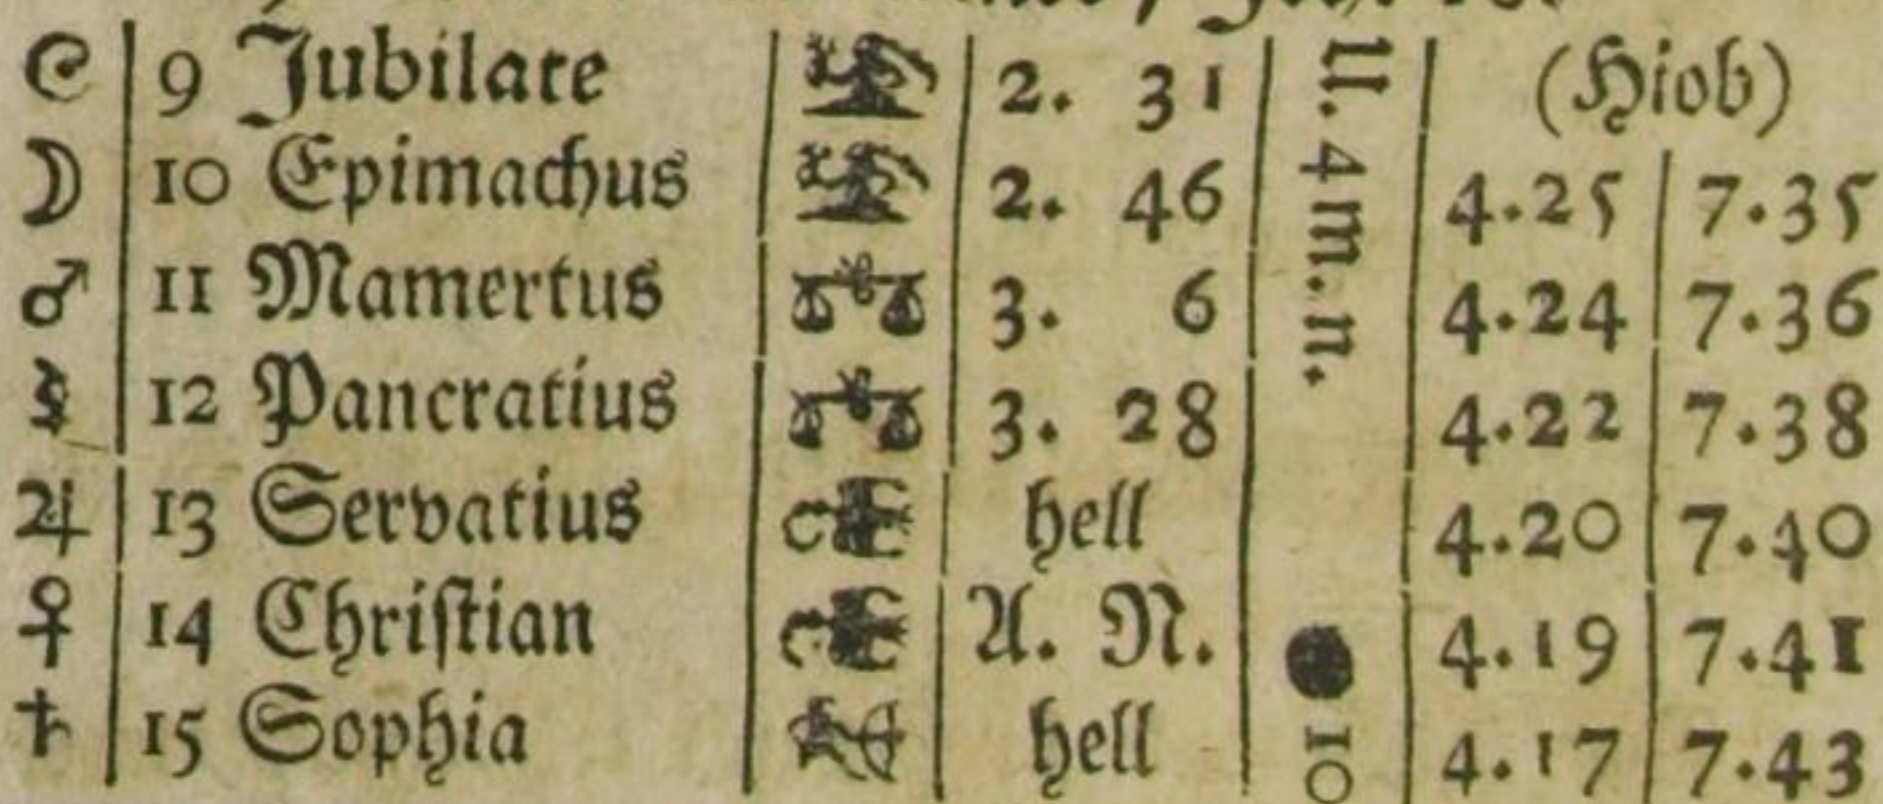 e 9 Jubilate 2. 31 (Hiob)
☽ 10 Epimachus 2. 46 4.25 7.35
♂ 11 Mamertus 3. 6 4.24 7.36
☿ 12 Pancratius 3. 28 4.22 7.38
♃ 13 Servatius hell 4.20 7.40
♀ 14 Chriſtian U. N. ● 4.19 7.41
♄ 15 Sophia hell 10 4.17 7.43
U. 4 m. n.